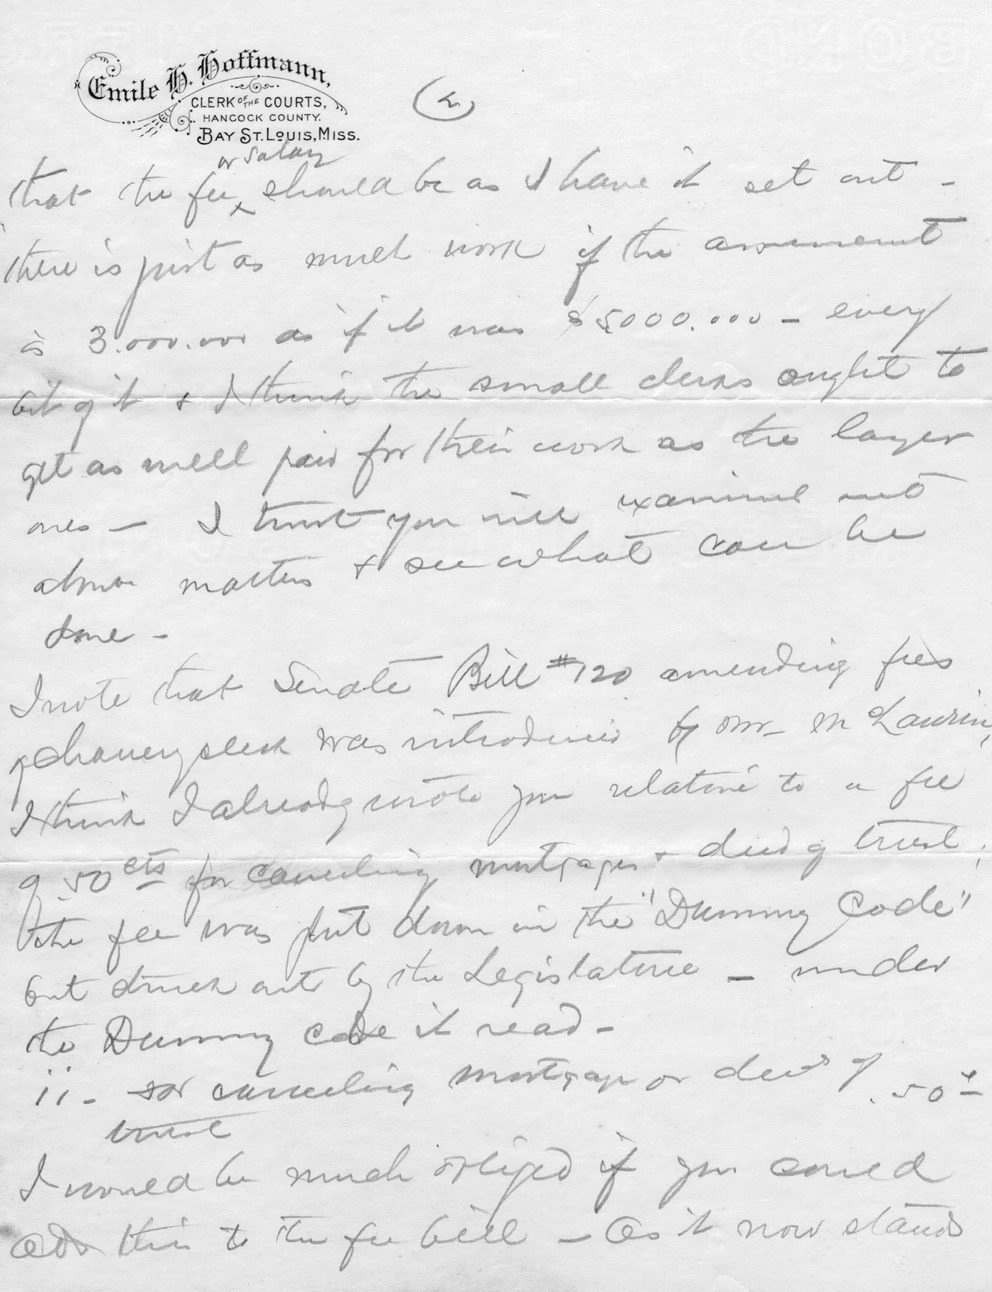 Emile H. Hoffmann,
CLERK OF THE COURTS,
HANCOCK COUNTY.
BAY ST. LOUIS, MISS.
(2)
or salary
that the fee x should be as I have it set out -
there is just as much work if the amount
is 3.000.000 as if it was $5000.000 - every
bit of it & I think the small clerks ought to
get as well paid for their work as the larger
ones - I trust you will examine into
above matters & see what can be
done -
I note that Senate Bill #120 amending fees
of chancery clerk was introduced by Mr. McLaurin,
I think I already wrote you relative to a fee
of 50 cts for canceling mortgages & deed of trust;
the fee was put down in the "Dummy Code"
but struck out by the Legislature - under
the Dummy Code it read -
ii - for canceling mortgage or deed of .50¢
trust
I would be much obliged if you could
add this to the fee bill - As it now stands